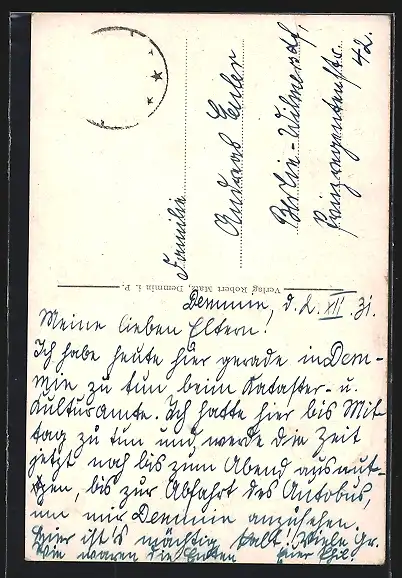 Familie
Andreas Euler
Berlin-Wilmersdf,
Prinzregentenstr.
42.
Verlag Robert Matz, Demmin i. P.
Demmin, d. 2. XII. 31.
Meine lieben Eltern!
Ich habe heute hier gerade in Dem-
min zu tun beim Kataster- u.
Kulturamte. Ich hatte hier bis Mit-
tag zu tun und werde die Zeit
jetzt noch bis zum Abend ausnut-
zen, bis zur Abfahrt des Autobus,
um mir Demmin anzusehen.
Hier ist's mächtig kalt! Viele Gr.
Wie waren die Enten Euer Phil.